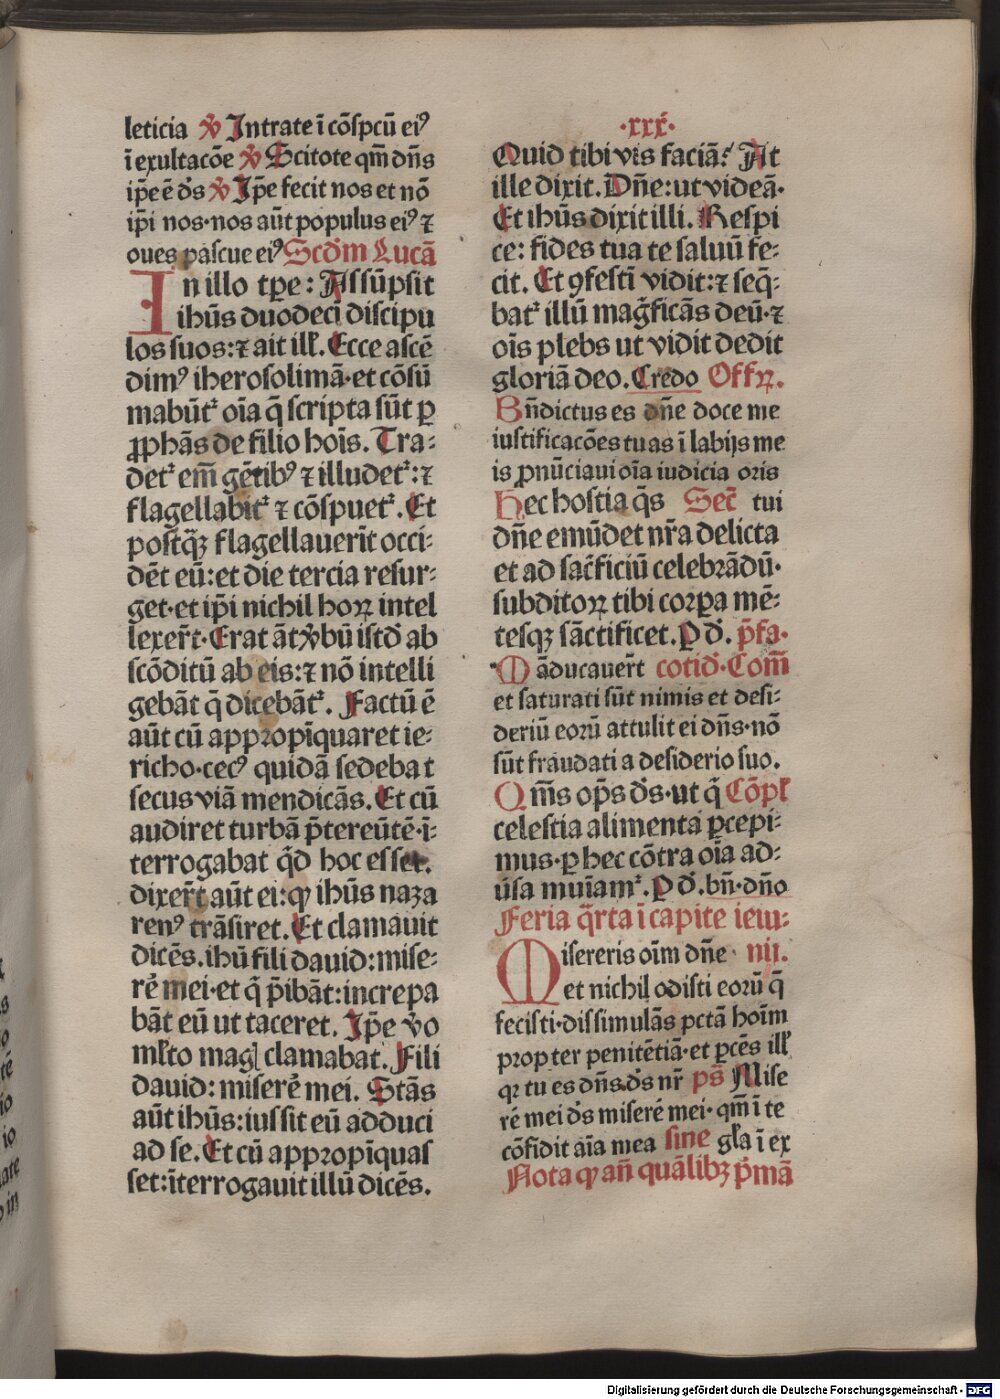 leticia ꝟ Intrate ī cōſpcū eiꝰ
ī exultacōe ꝟ Scitote qm̄ dn̄s
ip̄e ē ds̄ ꝟ Ip̄e fecit nos et nō
ip̄i nos·nos aūt populus eiꝰ ⁊
oues paſcue eiꝰ Scd̄m Lucā
In illo tp̄e: Aſſūpſit
ihūs duodecī diſcipu
los ſuos:⁊ ait ill̄. Ecce aſcē
dimꝰ iheroſolimā·et cōſū
mabūtᷣ oīa q̄ ſcripta ſūt ꝑ
ꝓphās de filio hoīs. Tra⸗
detᷣ em̄ gētibꝰ ⁊ illudetᷣ:⁊
flagellabitᷣ ⁊ cōſpuetᷣ. Et
poſtq̄ꝫ flagellauerīt occi⸗
dēt eū:et die tercia reſur⸗
get·et ip̄i nichil hoꝝ intel
lexer̄t·Erat āt ꝟbū iſtd̄ ab
ſcōditū ab eis:⁊ nō intelli
gebāt q̄ dicebātᷣ. Factū ē
aūt cū appropīquaret ie⸗
richo·cecꝰ quidā ſedebat
ſecus viā mendicās. Et cū
audiret turbā p̄tereūtē·ī⸗
terrogabat qd̄ hoc eſſet.
dixer̄t aūt ei:ꝙ ihūs naza
renꝰ trāſiret. Et clamauit
dicēs. ihū fili dauid:miſe⸗
rē mei·et q̄ p̄ibāt:increpa
bāt eū ut taceret. Ip̄e v̄o
ml̄to magꝭ clamabat. Fili
dauid: miſerē mei. Stās
aūt ihūs:iuſſit eū adduci
ad ſe. Et cū appropīquaſ
ſet:īterrogauit illū dicēs.
·xxx·
Quid tibi vis faciā? At
ille dixit. Dn̄e:ut videā·
Et ihūs dixit illi. Reſpi
ce: fides tua te ſaluū fe⸗
cit. Et ꝯfeſtī vidit:⁊ ſeq̄⸗
batᷣ illū mag̅ficās deū·⁊
oīs plebs ut vidit dedit
gloriā deo. Credo Offꝝ.
Bn̄dictus es dn̄e doce me
iuſtificacōes tuas ī labijs me
is ꝓnūciaui oīa iudicia oris
Hec hoſtia qs̄ Sec̄ tui
dn̄e emūdet nr̄a delicta
et ad ſac̄ficiū celebrādū·
ſubditoꝝ tibi corꝑa mē⸗
teſqꝫ ſāctificet. P d̄. p̄fa·
Māducauer̄t cotid̄·Com̄
et ſaturati ſūt nimis et deſi⸗
deriū eorū attulit ei dn̄s·nō
ſūt fraudati a deſiderio ſuo.
Qm̄s op̄s ds̄·ut q̄ Cōpl̄
celeſtia alimenta ꝑcepi⸗
mus·ꝑ hec cōtra oīa ad⸗
ūſa muīamᷣ. P d̄. bn̄·dn̄o
Feria q̄rta ī capite ieiu⸗
Miſereris oīm dn̄e · nij.
et nichil odiſti eorū q̄
feciſti·diſſimulās pctā hoīm
propter penitētiā·et ꝑcēs ill̄
qꝛ tu es dn̄s ds̄ nr̄ ps̄ Miſe
rē mei ds̄ miſerē mei· qm̄ ī te
cōfidit aīa mea ſine gl̄a ī ex
Nota ꝙ an̄ quālibꝫ p̄mā